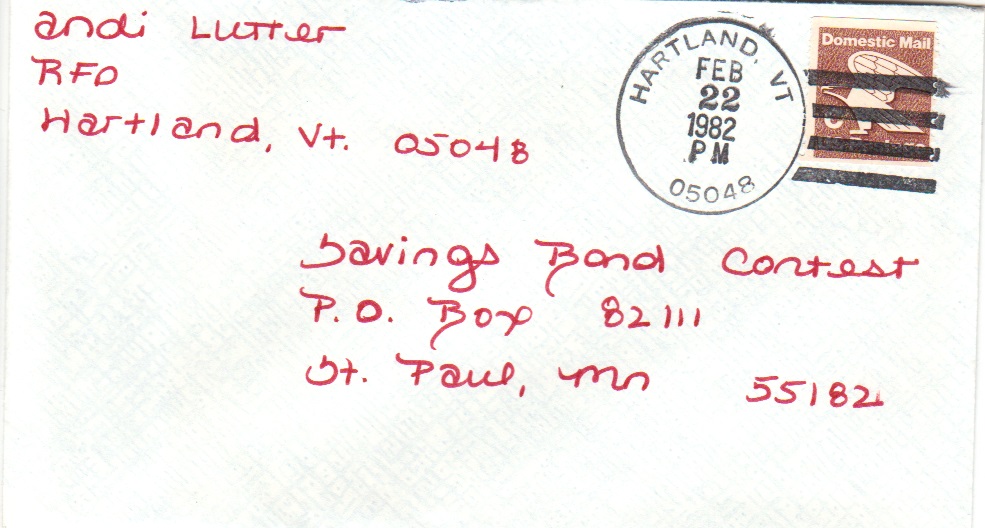 andi Lutter
RFD
Hartland, Vt. 05048
HARTLAND, VT
FEB
22
1982
PM
05048
Domestic Mail
C
Savings Bond Contest
P.O. Box 82111
St. Paul, Mn 55182